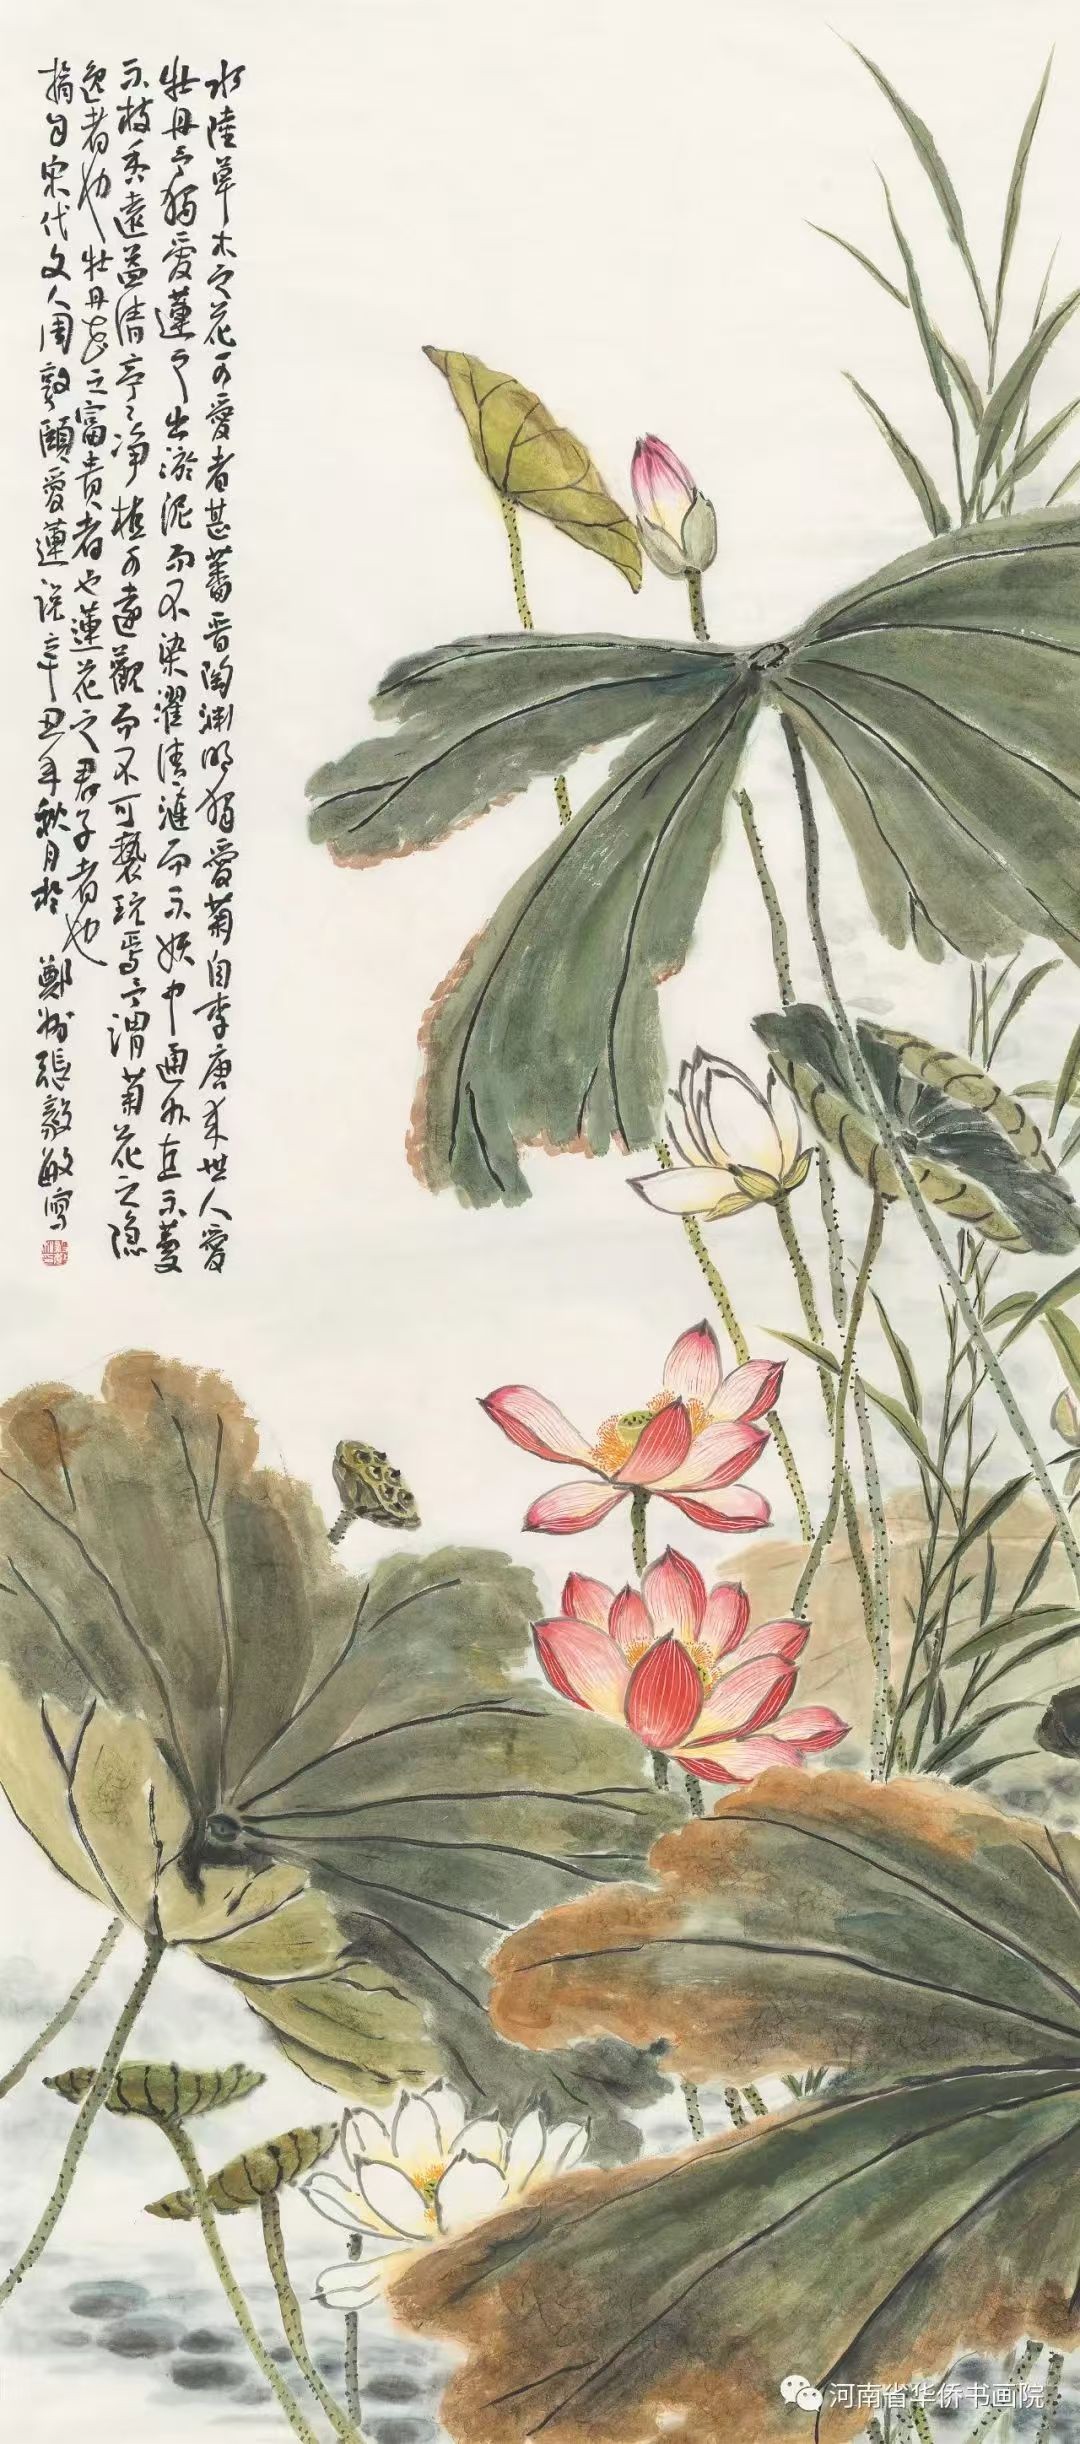 水陸草木之花可愛者甚蕃晋陶渊明獨愛菊自李唐来世人愛
牡丹予獨愛蓮之出淤泥而不染濯清漣而不妖中通外直不蔓
不枝香遠益清亭亭净植可遠觀而不可褻玩焉予謂菊花之隐
逸者也牡丹花之富貴者也蓮花之君子者也
摘自宋代文人周敦頤愛蓮説辛丑年秋月於鄭州張毅敏寫
河南省华侨书画院